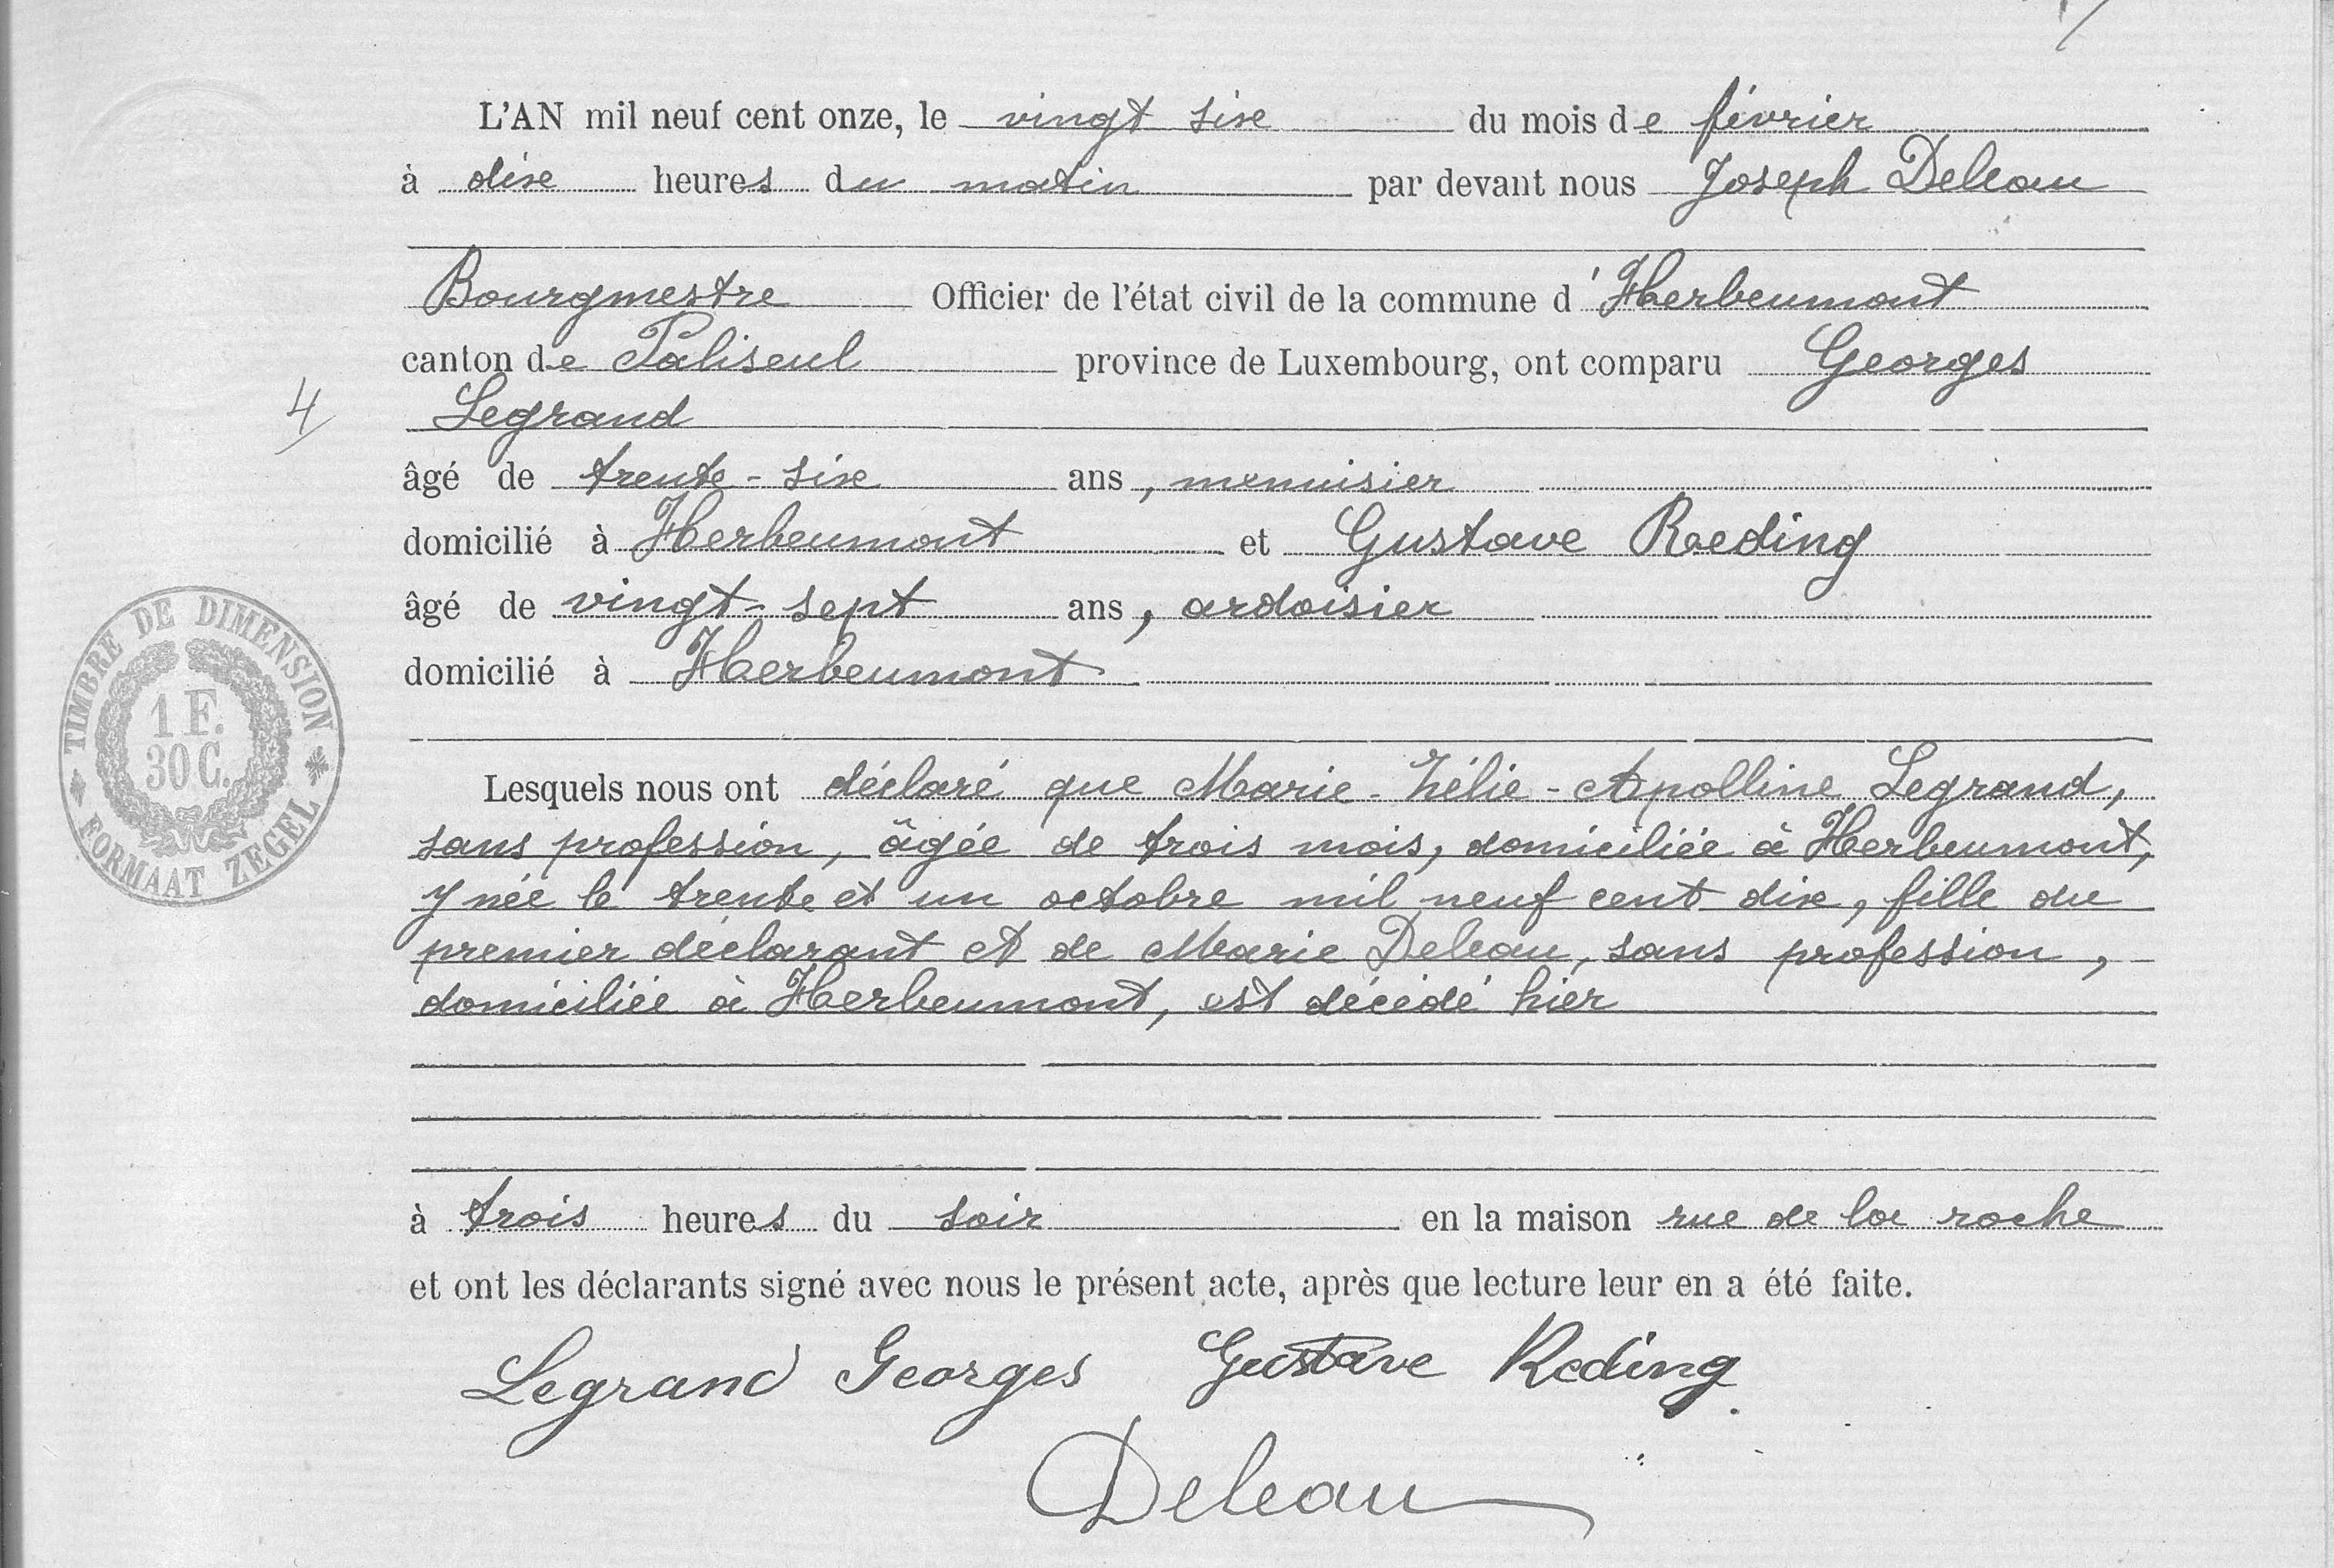 L'AN mil neuf cent onze, le vingt six du mois de février
à dix heures du matin par devant nous Joseph Deleau
Bourgmestre Officier de l'état civil de la commune d'Herbeumont
canton de Paliseul province de Luxembourg, ont comparu Georges
4
Legrand
âgé de trente-six ans, menuisier
domicilié à Herbeumont et Gustave Reding
âgé de vingt-sept ans, ardoisier
domicilié à Herbeumont
TIMBRE DE DIMENSION
1 F.
30 C.
FORMAAT ZEGEL
Lesquels nous ont déclaré que Marie-Zélie-Apolline Legrand,
sans profession, âgée de trois mois, domiciliée à Herbeumont,
y née le trente et un octobre mil neuf cent dix, fille du
premier déclarant et de Marie Deleau, sans profession,
domiciliée à Herbeumont, est décédé hier
à trois heures du soir en la maison rue de la roche
et ont les déclarants signé avec nous le présent acte, après que lecture leur en a été faite.
Legrand Georges Gustave Reding
Deleau